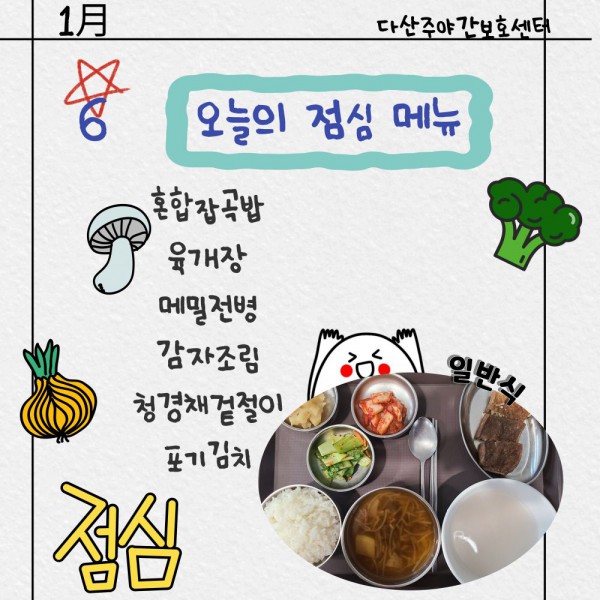 1月
다산주야간보호센터
6
오늘의 점심 메뉴
혼합잡곡밥
육개장
메밀전병
감자조림
청경채겉절이
포기김치
일반식
점심